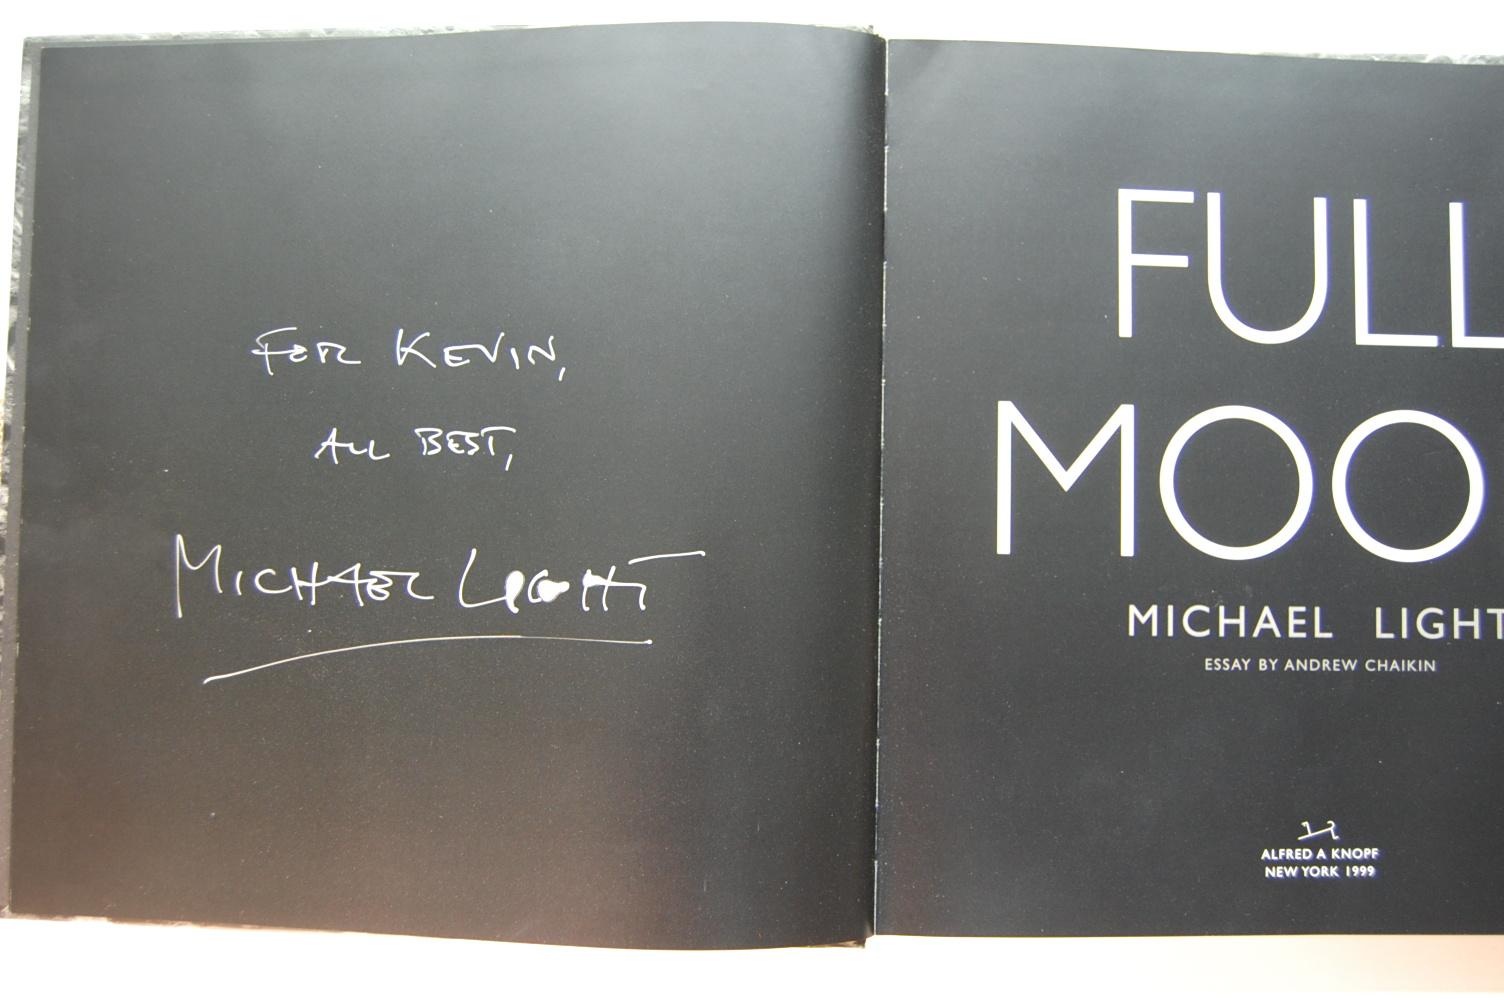 FOR KEVIN,
ALL BEST,
MICHAEL LIGHT
FULL
MOO
MICHAEL LIGHT
ESSAY BY ANDREW CHAIKIN
ALFRED A KNOPF
NEW YORK 1999